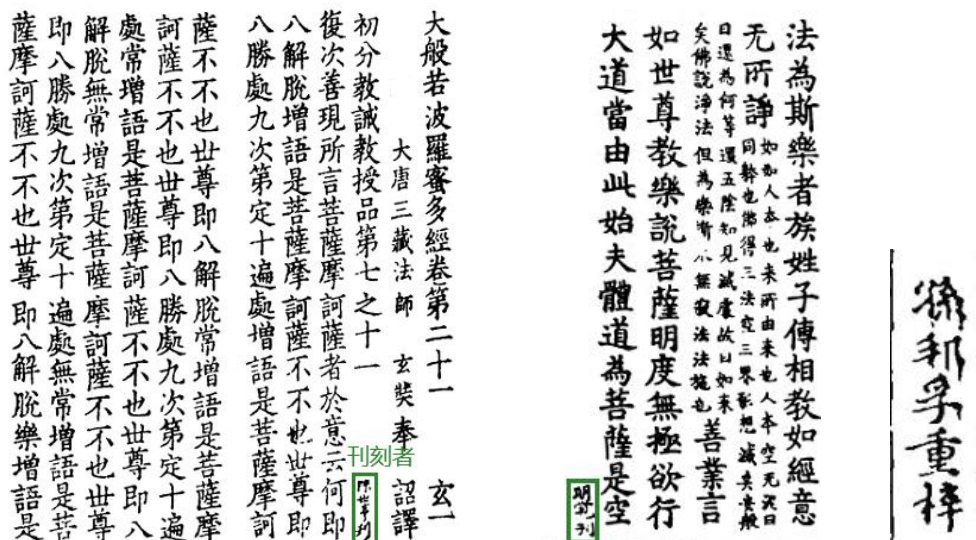 孚重梓
法為斯樂者族姓子傳相教如經意
无所諍
如如人本也來所由來也人本空无泥曰
同幹也諦得三法究三界影想滅矣般
曰還為何等還五陰知見滅處故曰如來
矣佛說淨法但為樂小無寂法法施也
善業言
如世尊教樂說菩薩明度無極欲行
大道當由此始夫體道為菩薩是空
明刊
大般若波羅蜜多經卷第二十一 玄一
大唐三藏法師 玄奘奉 詔譯
刊刻者
初分教誡教授品第七之十一
復次善現所言菩薩摩訶薩者於意云何即
八解脫增語是菩薩摩訶薩不不也世尊即
八勝處九次第定十遍處增語是菩薩摩訶
薩不不也世尊即八解脫常增語是菩薩摩
訶薩不不也世尊即八勝處九次第定十遍
處常增語是菩薩摩訶薩不不也世尊即八
解脫無常增語是菩薩摩訶薩不不也世尊
即八勝處九次第定十遍處無常增語是菩
薩摩訶薩不不也世尊即八解脫樂增語是